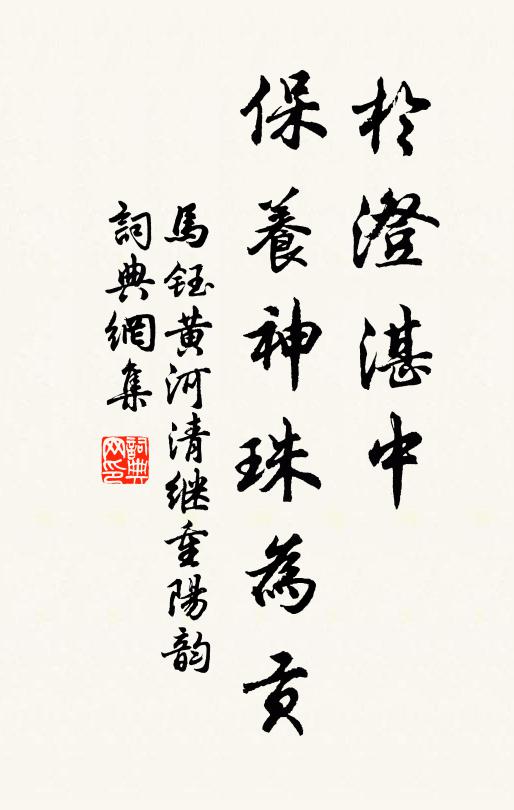 於澄湛中
保養神珠為貢
馬鈺黄河清继重陽韵
詞典網集
詞典
网印